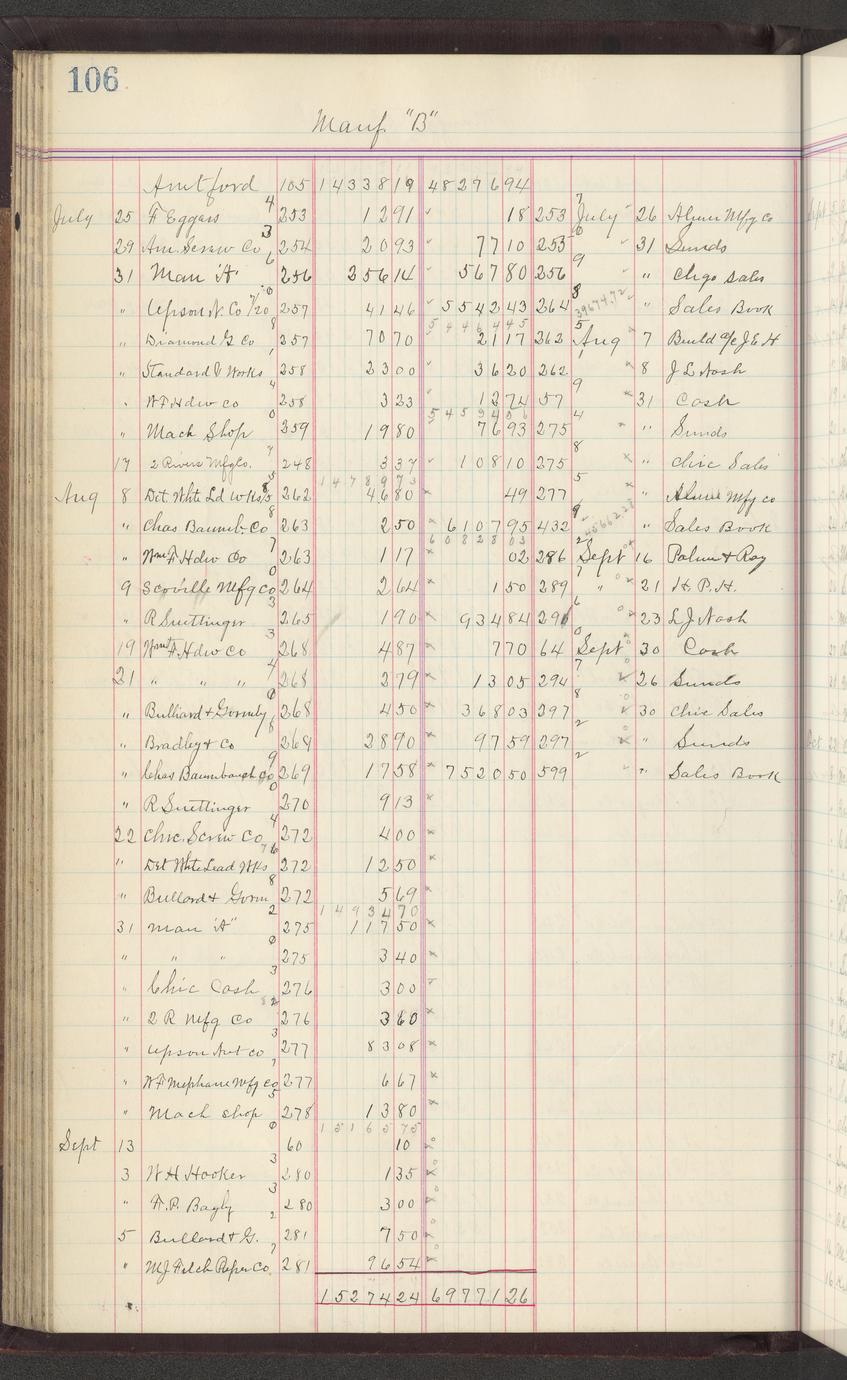 106
Manf. "B"
Amt ford 105 1433819 4829694
July 25 F Eggars 4 253 1291 18 253 7 July 26 Alum Mfg Co
29 Am. Screw Co 3 254 2093 7710 253 31 Sunds
31 Man "A" 6 256 25614 56780 256 9 " Chgo Sales
" Upson N. Co 7/20 257 4146 554243 264 8 39674.72 " Sales Book
5446445
" Diamond G Co 8 257 7070 2117 262 5 Aug 7 Build a/c J E H
" Standard Works 1 258 2300 3620 262 1 8 J L Nash
" W F Hdw Co 4 258 323 1274 57 9 31 Cash
5453406
" Mach Shop 0 259 1980 7693 275 4 " Sunds
17 2 Rivers Mfg Co. 7 248 337 10810 275 8 " Chic Sales
1478973
Aug 8 Det White Ld Wks 5 262 4680 49 277 5 " Alum Mfg Co
" Chas Baumb. Co 8 263 250 610795 432 9 " Sales Book
6082803
" Wm F Hdw Co 7 263 117 02 286 2 Sept 16 Palmer & Ray
9 Scoville Mfg Co 0 264 264 150 289 7 " 21 H. P. H.
" R Snettinger 3 265 190 93484 291 6 23 L J Nash
19 Wm F Hdw Co 3 268 487 770 64 0 Sept 30 Cash
21 " " " 4 268 279 1305 294 7 26 Sunds
" Bulliard & Gormly 0 268 450 36803 297 8 30 Chic Sales
" Bradley & Co 6 268 2890 9759 297 2 " Sunds
" Chas Baumbaugh Co 9 269 1758 752050 599 2 " Sales Book
" R Snettinger 0 270 913
22 Chic. Screw Co 4 272 400
" Det White Lead Wks 272 1250
" Bullard & Gorm 8 272 569
1493470
31 Man "A" 2 275 11750
" " " 0 275 340
" Chic Cash 3 276 300
" 2 R Mfg Co 276 360
" Upson Nut Co 3 277 8308
" W F Mephane Mfg Co 277 667
" Mach Shop 5 278 1380
1516575
Sept 13 0 60 10
3 W H Hooker 3 280 135
" F. P. Bagly 3 280 300
5 Bullard & G. 2 281 750
" M J Fitch Paper Co 7 281 9654
1527424 6977126